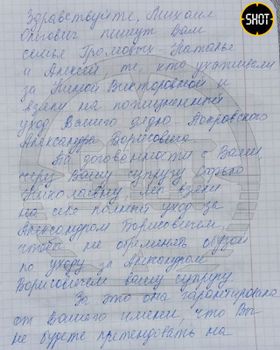 SHOT
Здравствуйте, Михаил
Олегович пишут Вам
семья Громовых Наталье
и Алексей те кто ухаживали
за Ниной Викторовной и
взяли на пожизненный
уход Вашего дядю Покровского
Александра Борисовича.
По договоренности с Вами
через Вашу супругу Ольгу
Николаевну мы взяли
на себя полный уход за
Александром Борисовичем,
чтобы не обременять обузой
по уходу за Александром
Борисовичем вашу супругу
За это она гарантировала
от Вашего имени, что Вы
не будете претендовать на